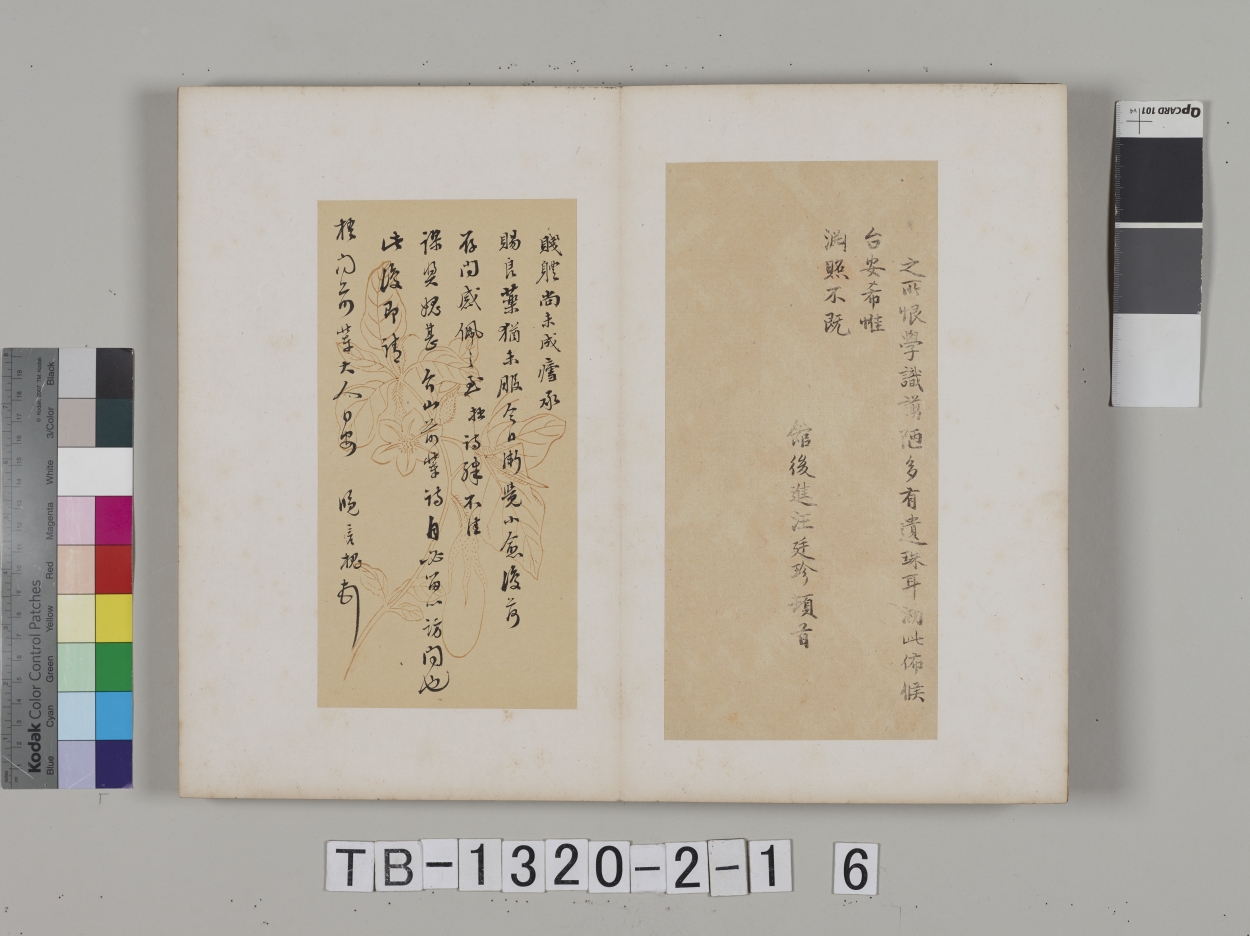 之所恨學識譾陋多有遺珠耳泐此佈候
台安希惟
淵照不既
館後進汪廷珍頓首
賤軆尚未成癒承
賜良藥猶未服今日漸覺小愈後苻
存問感佩之至拙詩殊不佳
謬奬媿甚 前輩詩自必留心訪問也
此復即請
前輩大人日安
Kodak Color Control Patches
Blue Cyan Green Yellow Red Magenta White 3/Color Black
QPCARD 101 v4
TB-1320-2-1 6